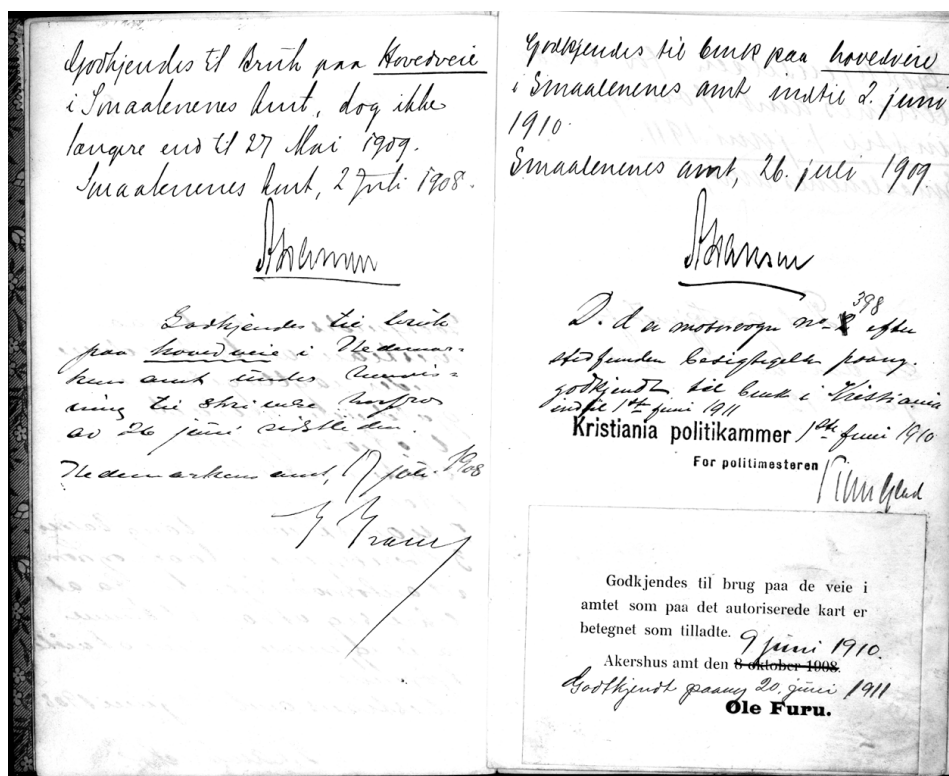 Godkjendes til Bruk paa Hovedveie
i Smaalenenes Amt, dog ikke
længere end til 27 Mai 1909.
Smaalenenes Amt, 2 Juli 1908.
Godkjendes til bruk
paa hovedveie i Hedemar-
kens amt under henvis-
ning til skrivelse herfra
av 26 juni sidstleden.
Hedemarkens amt, 17 juli 1908
Godkjendes til bruk paa hovedveie
i Smaalenenes amt indtil 2. juni
1910.
Smaalenenes amt, 26. juli 1909
398
D. d er motorvogn no. efter
stedfunden besigtigelse paany
godkjendt til bruk i Kristiania
indtil 1ste juni 1911
Kristiania politikammer 1ste juni 1910
For politimesteren
Godkjendes til brug paa de veie i
amtet som paa det autoriserede kart er
betegnet som tilladte.
9 juni 1910.
Akershus amt den 8 oktober 1908.
Godtkjendt paany 20. juni 1911
Ole Furu.